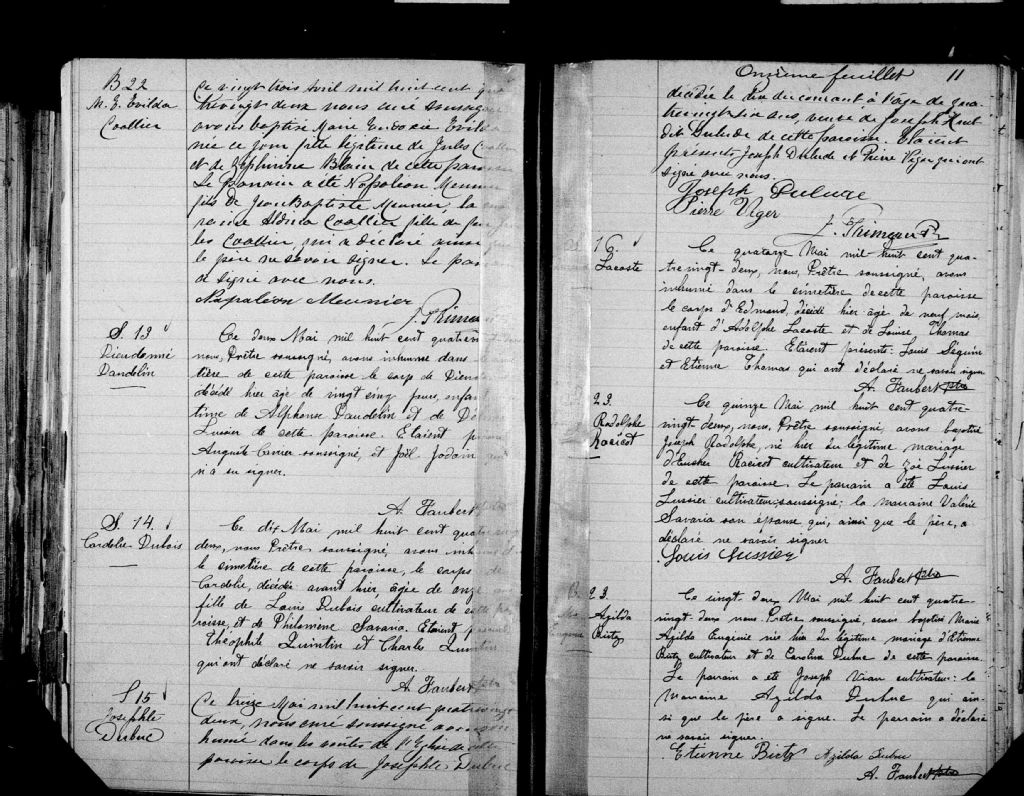 B 22
M. E. Evilda
Coallier
Ce vingt trois Avril mil huit cent qua
trevingt deux nous curé soussigné
avons baptisé Marie Evilda
née ce jour fille légitime de Jules
et de Zéphirine Blain de cette
Le parrain a été Napoléon Meunier
fils de Jean Baptiste Meunier, la
Coallier fille de
les Coallier, qui a déclaré ainsi
le père ne savoir signer. Le
a signé avec nous.
Napoléon Meunier
S. 13
Dieudonné
Dandelin
Ce deux Mai mil huit cent
nous, Prêtre soussigné, avons inhumé dans
tière de cette paroisse le corps de
décédé hier âgé de vingt cinq jours,
time de Alphonse Dandelin et de
Lussier de cette paroisse. Etaient
soussigné, et Joël Jodoin
n'a su signer.
A. Faubert
S. 14.
Cordelie Dubois
Ce dix Mai mil huit cent
deux, nous Prêtre soussigné, avons
le cimetière de cette paroisse, le corps de
Cordelie, décédée avant hier, âgée de onze
fille de Louis Dubois cultivateur de cette
roisse, et de Philomène Savaria. Etaient
Théophile Quintin et Charles
qui ont déclaré ne savoir signer.
A. Faubert
S 15
Dubuc
Ce treize Mai mil huit cent
deux, nous curé soussigné avons
humé dans les voûtes de l'Eglise de cette
paroisse le corps de Josephte Dubuc
Onzième feuillet 11
décédée le dix du courant à l'âge de qua
ans, veuve de Joseph
dit Dulude de cette paroisse. Etaient
présents Joseph Dulude et Pierre Viger qui ont
signé avec nous.
Joseph Dulude
Pierre Viger
16.
Lacoste
Ce quatorze Mai mil huit cent qua-
tre vingt-deux, nous, Prêtre soussigné, avons
inhumé dans le cimetière de cette paroisse
le corps d'Edmond, décédé hier âgé de neuf mois,
enfant d'Adolphe Lacoste et de Louise Thomas
de cette paroisse. Etaient présents: Louis Séguin
et Etienne Thomas qui ont déclaré ne savoir signer
A. Faubert ptre
23.
Rodolphe
Racicot
Ce quinze Mai mil huit cent quatre-
vingt-deux, nous, Prêtre soussigné, avons baptisé
Joseph Rodolphe, né hier du légitime mariage
d'Eusèbe Racicot cultivateur et de Zoé Lussier
de cette paroisse. Le parrain a été Louis
Lussier cultivateur soussigné; la marraine Valérie
Savaria son épouse qui, ainsi que le père, a
déclaré ne savoir signer
Louis Lussier
A. Faubert ptre
B. 23.
Azilda
Eugénie
Ce vingt-deux Mai mil huit cent quatre-
vingt-deux nous Prêtre soussigné, avons baptisé Marie
Azilda Eugénie née hier du légitime mariage d'Etienne
cultivateur et de Caroline Dubuc de cette paroisse.
Le parrain a été Joseph Viau cultivateur: la
marraine Azilda Dubuc qui ain-
si que le père a signé. Le parrain a déclaré
ne savoir signer.
Etienne Azilda Dubuc
A. Faubert ptre